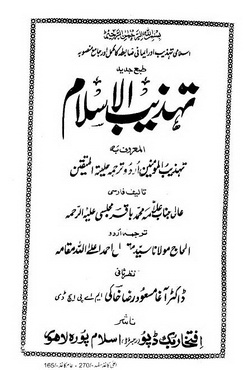 بسم اللہ الرحمٰن الرحیم
اسلامی تہذیب اور ایمانی ضابطہ کا مکمل اور جامع منصوبہ
طبع جدید
تہذیب الاسلام
المعروف بہ
تہذیب المؤمنین اردو ترجمہ حلیۃ المتقین
تالیف فارسی
عالی جناب علامہ محمد باقر مجلسی علیہ الرحمہ
ترجمہ اردو
الحاج مولانا سید احمد اعلی اللہ مقامہ
نظرثانی
ڈاکٹر آغا مسعود رضا خاکی ایم اے پی ایچ ڈی
ناشر
افتخار بک ڈپو اسلام پورہ لاہور
270/- 165/-